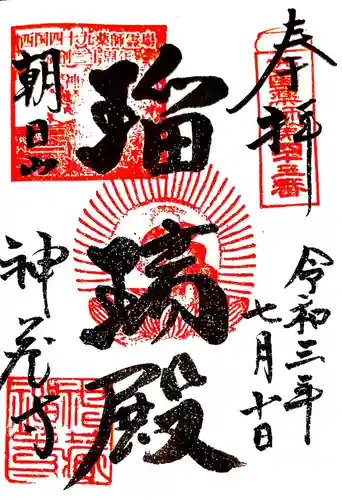 奉拝
令和三年
七月十日
瑠璃殿
朝日山
神蔵寺
西国四十九薬師霊場